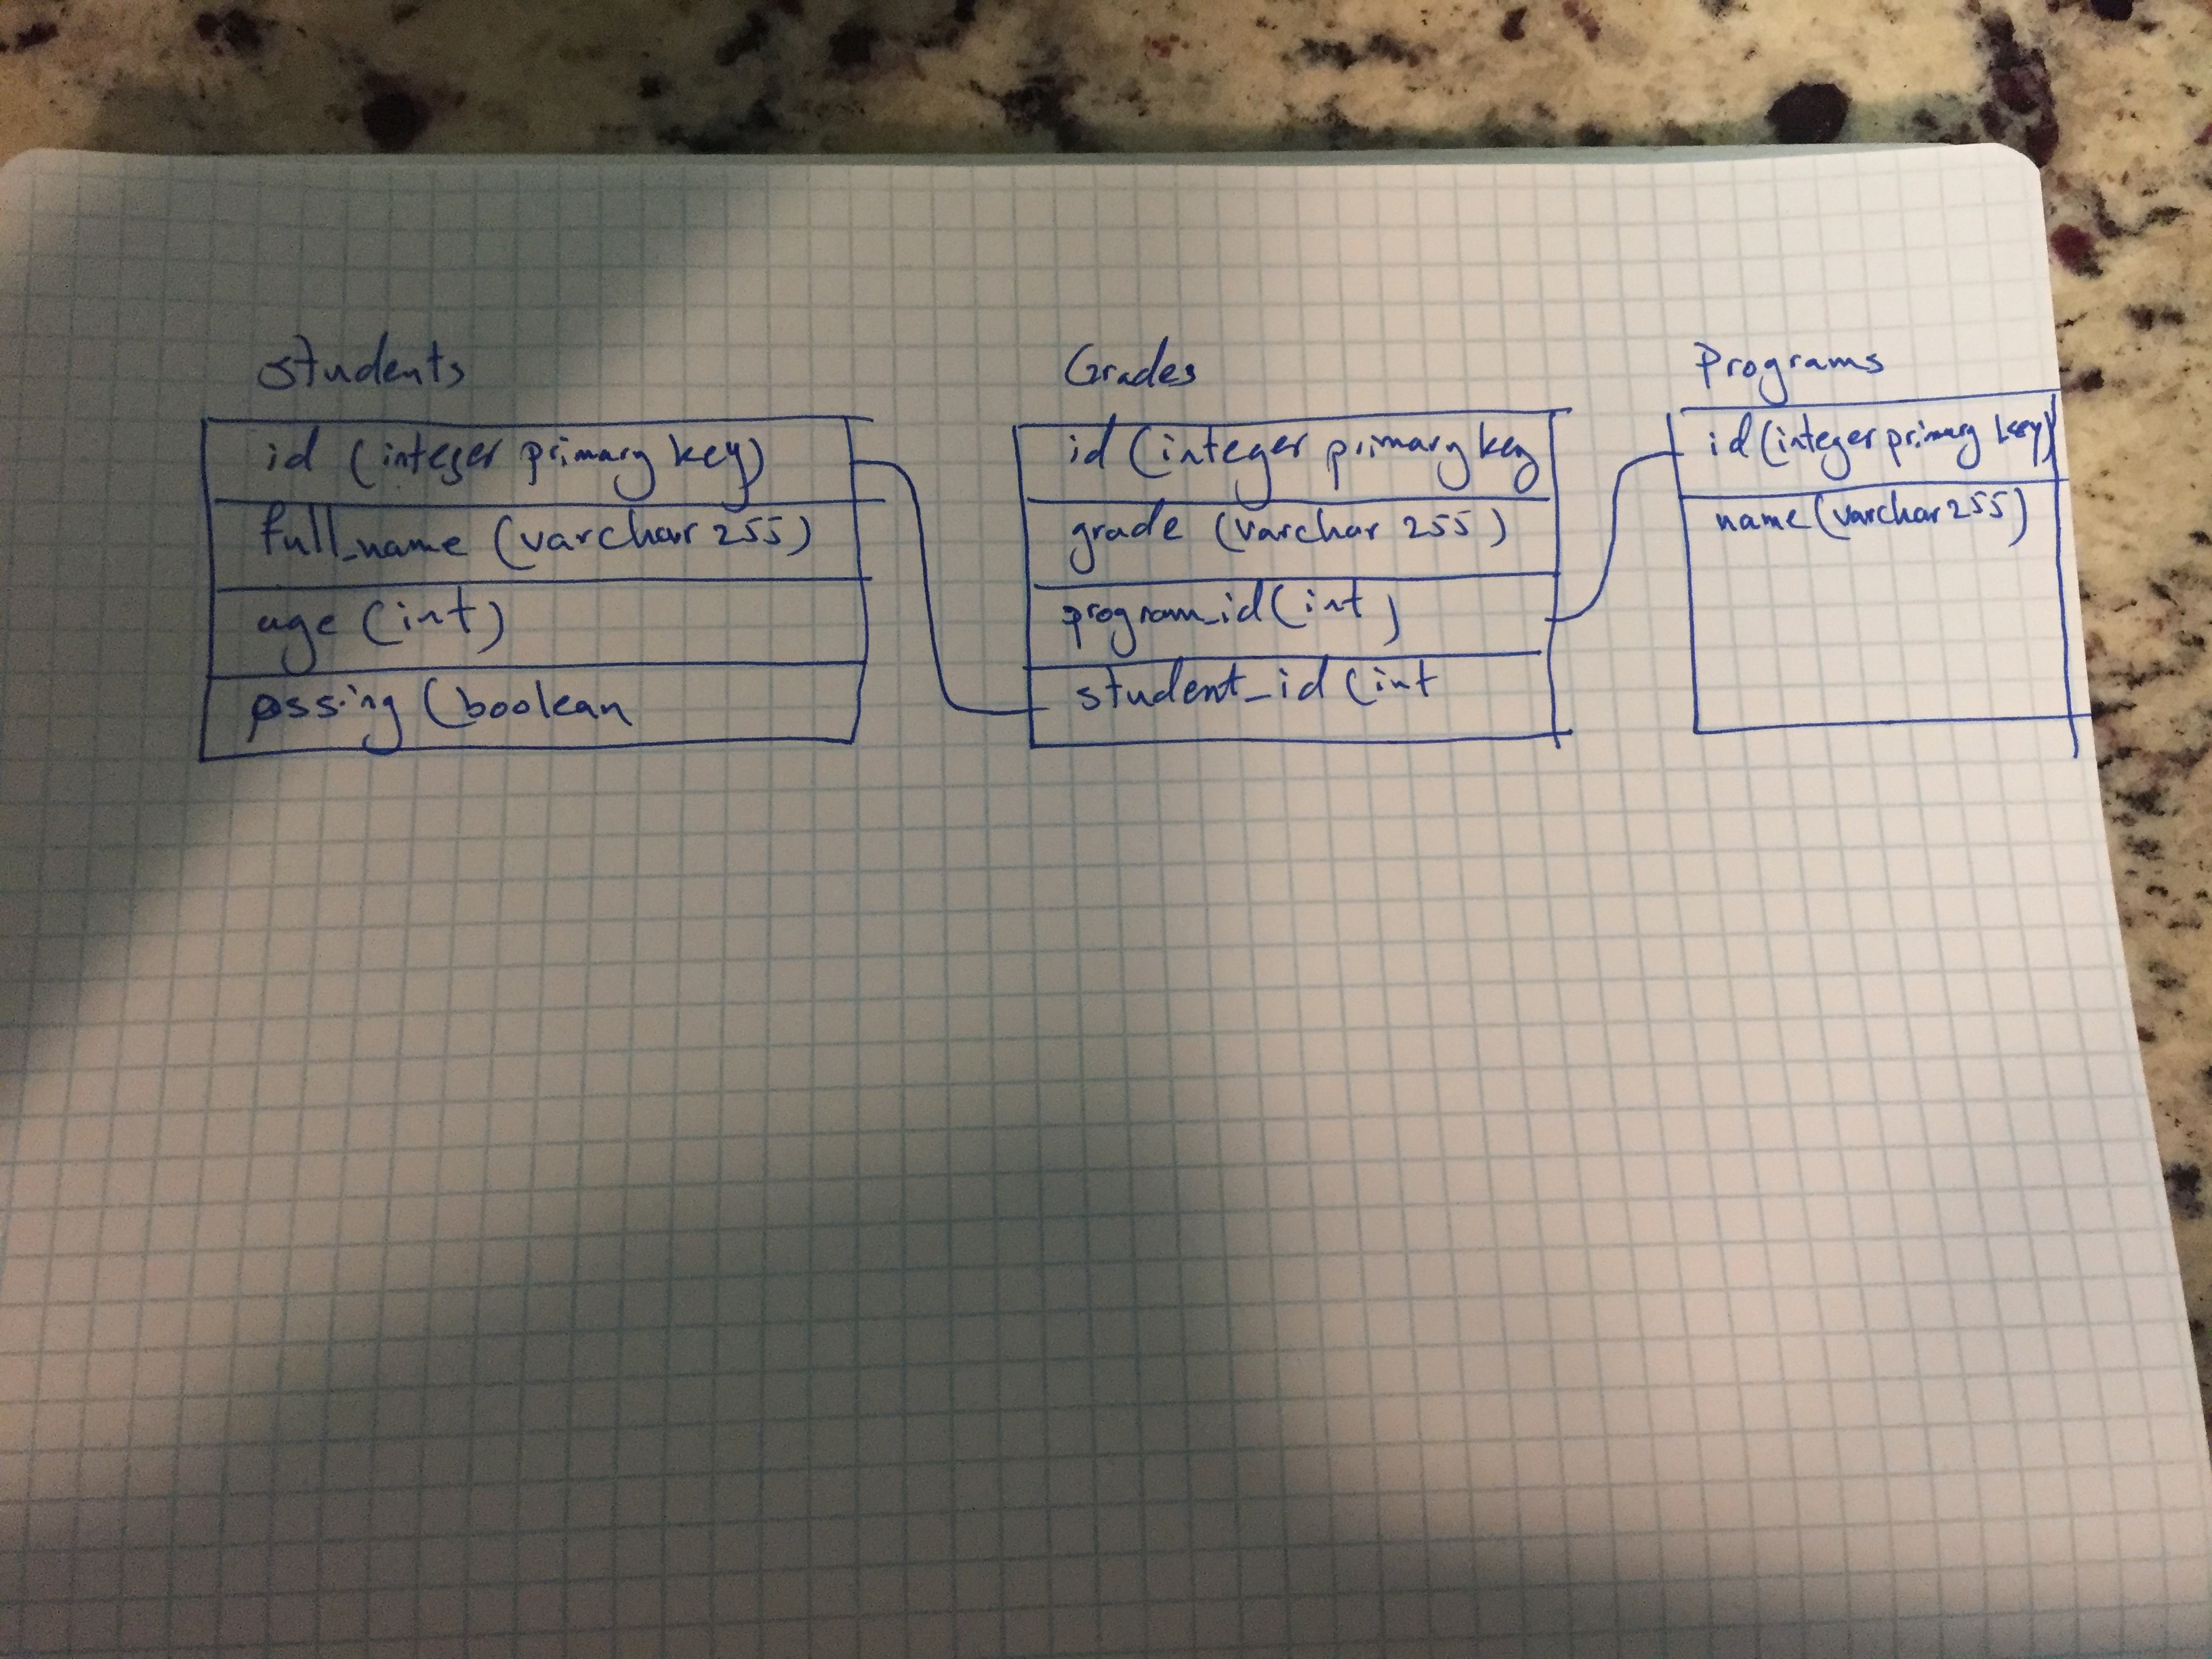 students
id (integer primary key)
full_name (varchar 255)
age (int)
passing (boolean
Grades
id (integer primary key
grade (varchar 255)
program_id (int)
student_id (int
Programs
id (integer primary key)
name (varchar 255)